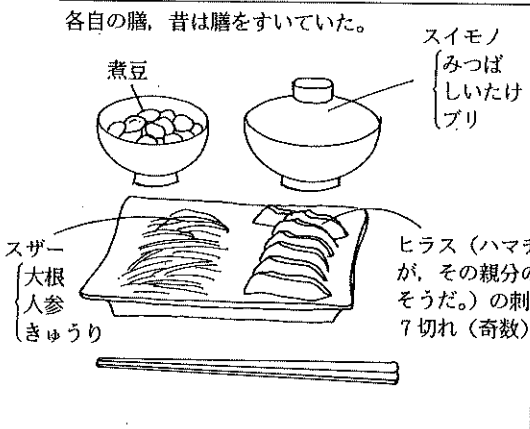 各自の膳，昔は膳をすいていた。
煮豆
スイモノ
みつば
しいたけ
ブリ
スザー
大根
人参
きゅうり
ヒラス（ハマチ
が，その親分の
そうだ。）の刺
7切れ（奇数）